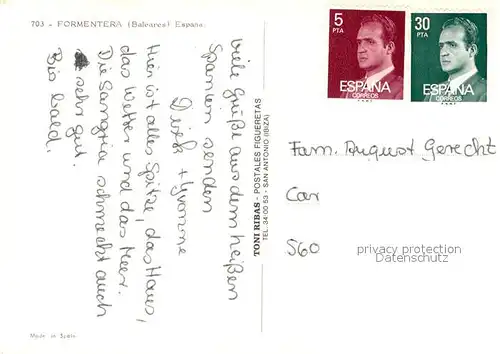 703 - FORMENTERA (Baleares) España.
Viele Grüße aus dem heißen
Spanien senden
+ Yvonne
Hier ist alles Spitze, das Haus,
das Wetter und das Meer.
Die Sangria schmeckt auch
sehr gut.
Bis bald.
Made in Spain
TONI RIBAS - POSTALES FIGUERETAS
TEL. 34 00 53 - SAN ANTONIO (IBIZA)
5
PTA
ESPAÑA
CORREOS
30
PTA
ESPAÑA
CORREOS
Fam. August Gerecht
Car
560
privacy protection
www.delcampe.net